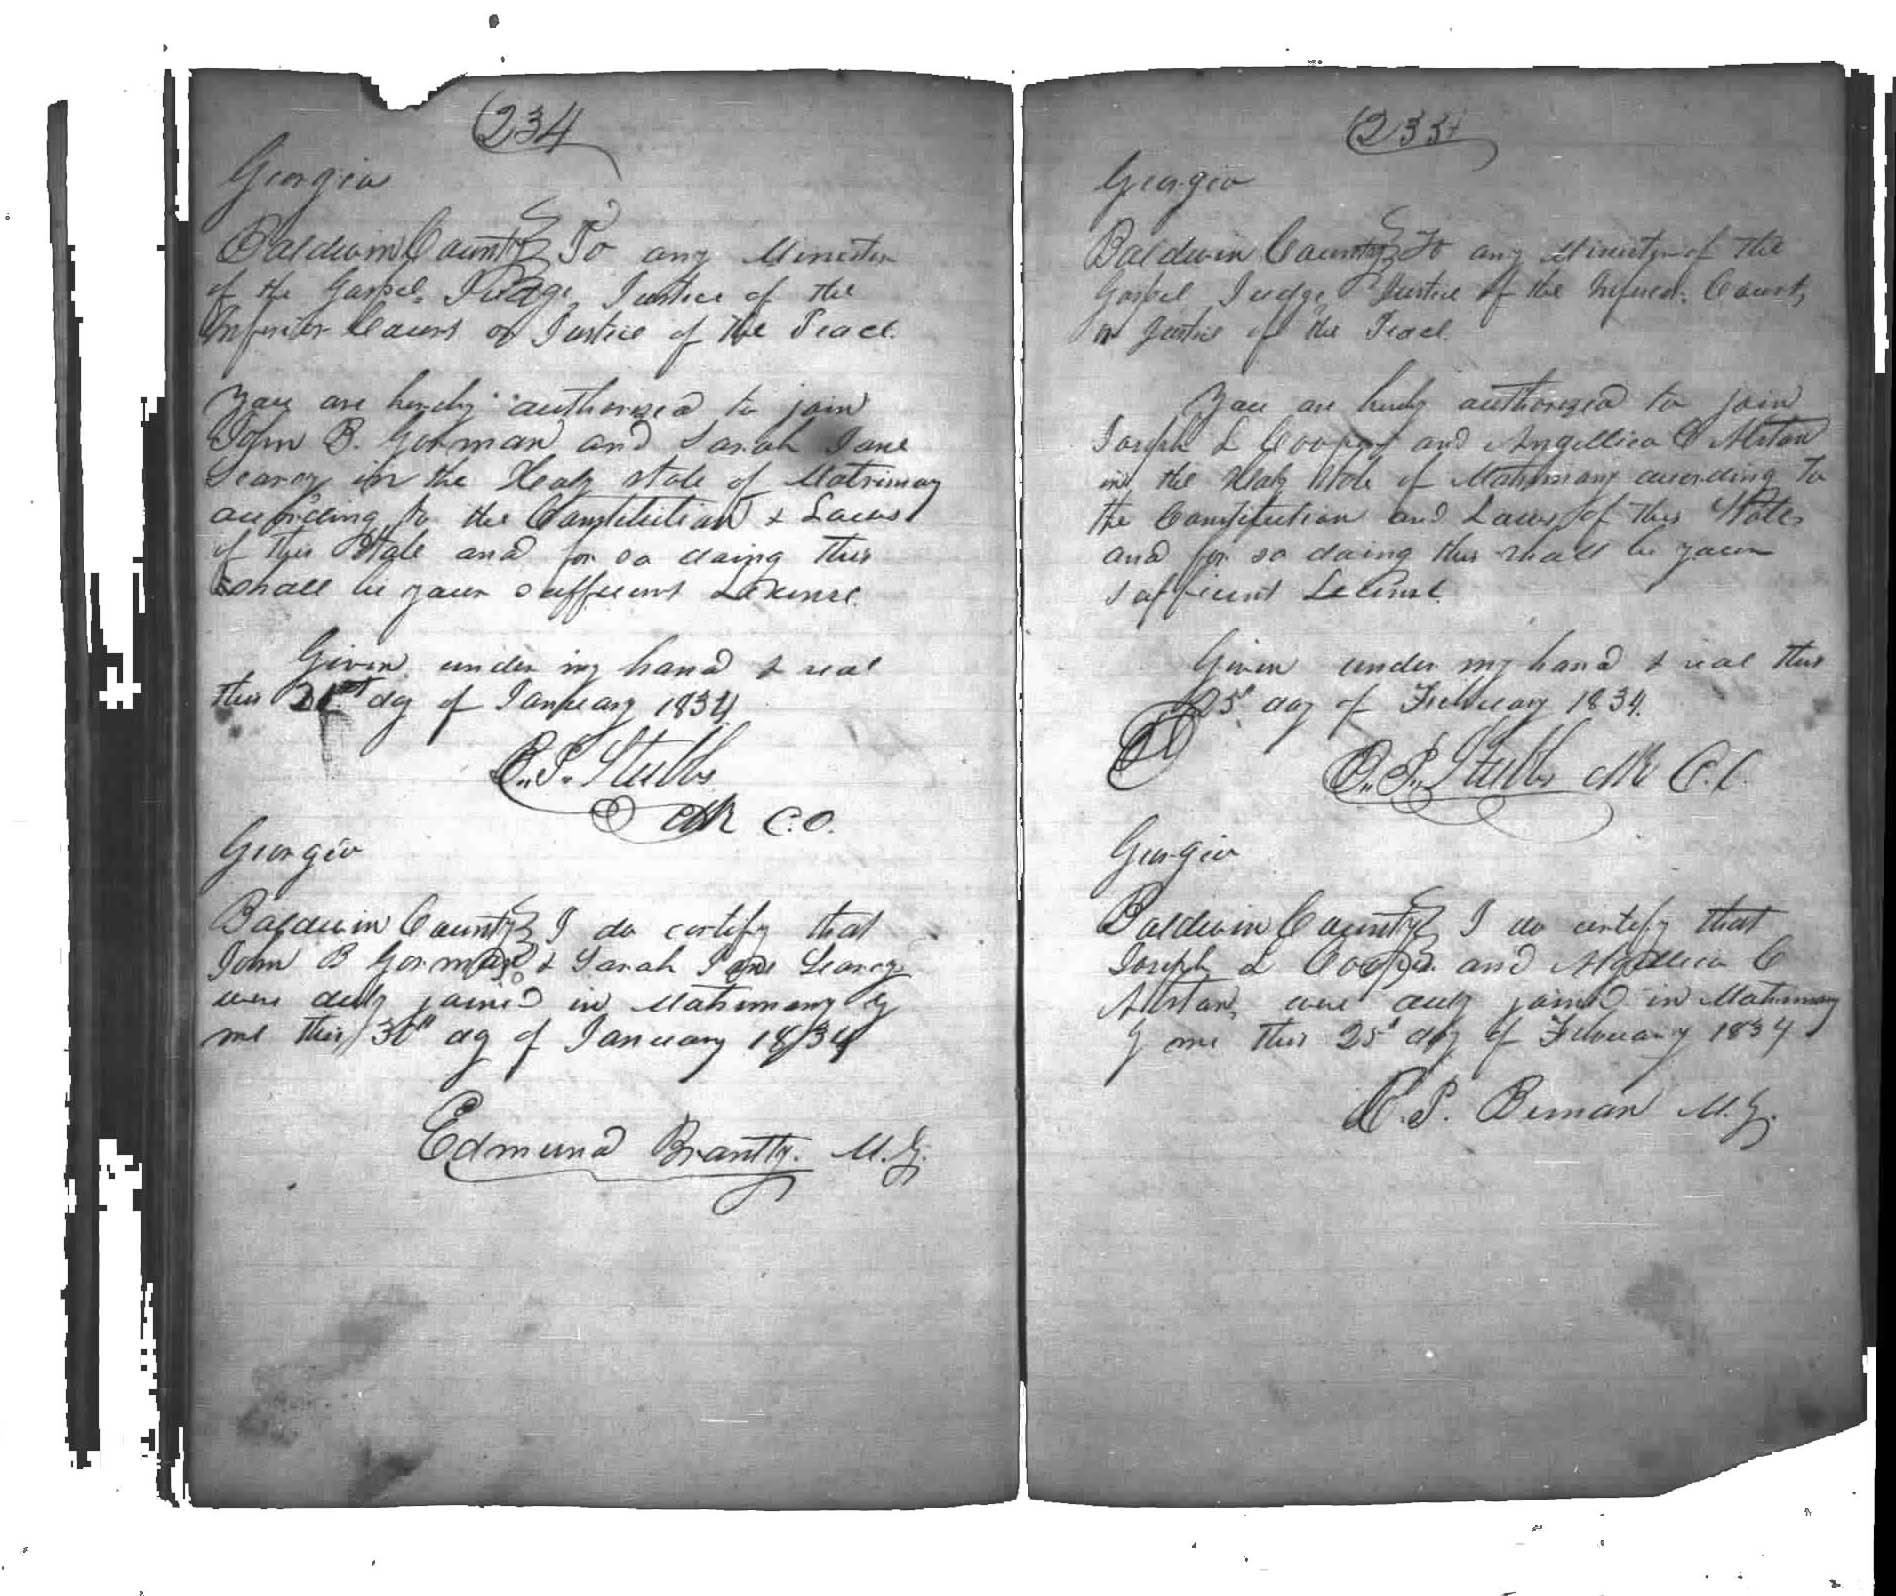 234
Georgia
Baldwin County To any Minister
of the Gospel, Judge, Justice of the
Inferior Court or Justice of the Peace.
You are hereby authorized to join
John B. Gorman and Sarah Jane
Searcy in the Holy state of Matrimony
according to the Constitution & Laws
of this State and for so doing this
shall be your sufficient License.
Given under my hand & seal
this 21st day of January 1834.
B. P. Stubbs
Clk C.O.
Georgia
Baldwin County I do certify that
John B Gorman & Sarah Jane Searcy
were duly joined in Matrimony by
me this 30th day of January 1834
Edmund Brantly. M.G.
235
Georgia
Baldwin County To any Minister of the
Gospel Judge, Justice of the Inferior Court,
or Justice of the Peace.
You are hereby authorized to join
Joseph L Cooper and Angellica C Alston
in the Holy State of Matrimony according to
the Constitution and Laws of this State
and for so doing this shall be your
sufficient License.
Given under my hand & seal this
25th day of February 1834.
B. P. Stubbs Clk C.O.
Georgia
Baldwin County I do certify that
Joseph L Cooper and Angellica C
Alston, were duly joined in Matrimony
by me this 25th day of February 1834
C. P. Beman M.G.